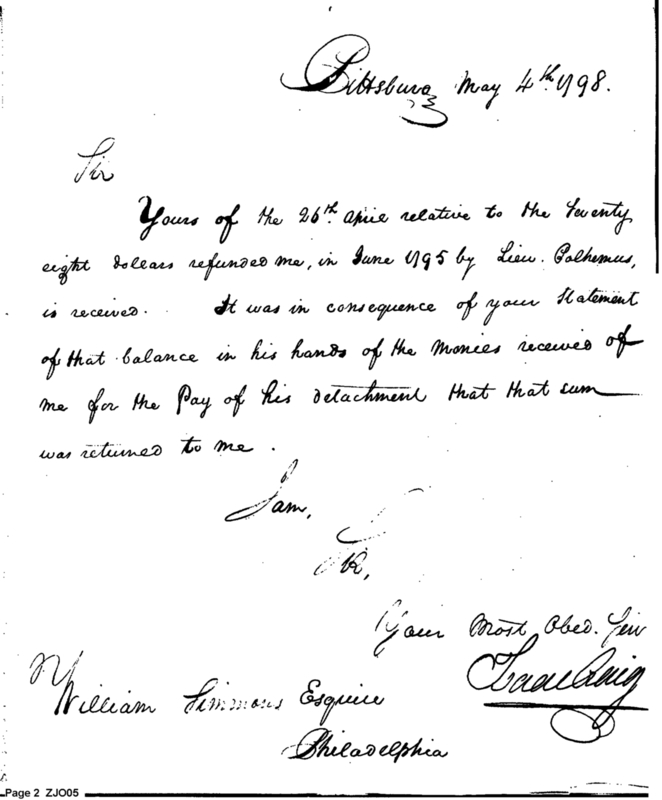 Pittsburg May 4th 1798.
Sir
Yours of the 26th April relative to the twenty
eight dollars refunded me, in June 1795 by Lieu. Polhemus,
is received. It was in consequence of your Statement
of that balance in his hands of the Monies received of
me for the Pay of his detachment that that sum
was returned to me.
I am,
Sir,
Your Most Obed. Ser
Isaac Craig
William Simmons Esquire
Philadelphia
Page 2 ZJO05